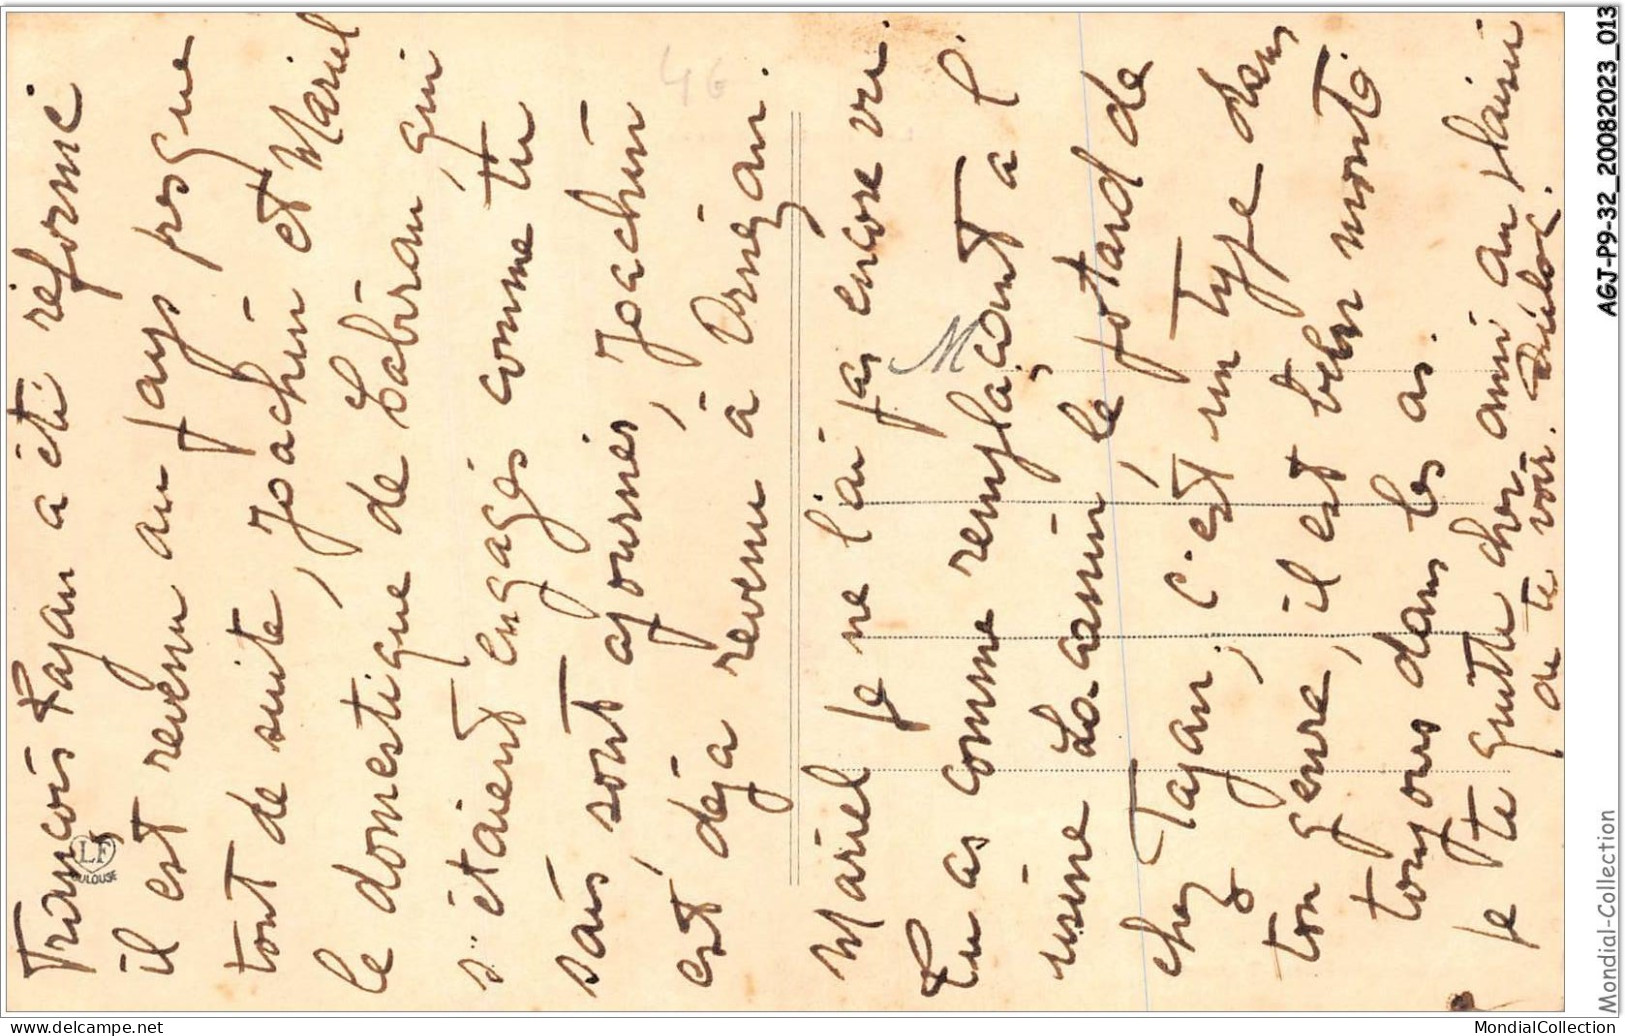 François Lajan a été réformé
il est revenu au pays presque
tout de suite, Joachin et Mariel
le domestique de Cabiran, qui
s'étaient engagés comme tu
sais sont ajournés, Joachin
est, déja revenu à Ornézan.
Mariel je ne l'ai pas encore vu.
Tu as comme remplaçant a l'
usine Lacassin le potard de
chez Tajan, c'est un type dans
ton genre, il est bien monté
toujours dans les as.
Je te quitte cher ami au plaisir
de te voir. Dulac.
M
46
LF
TOULOUSE
AGJ-P9-32_20082023_013
Mondial-Collection
www.delcampe.net
MondialCollection